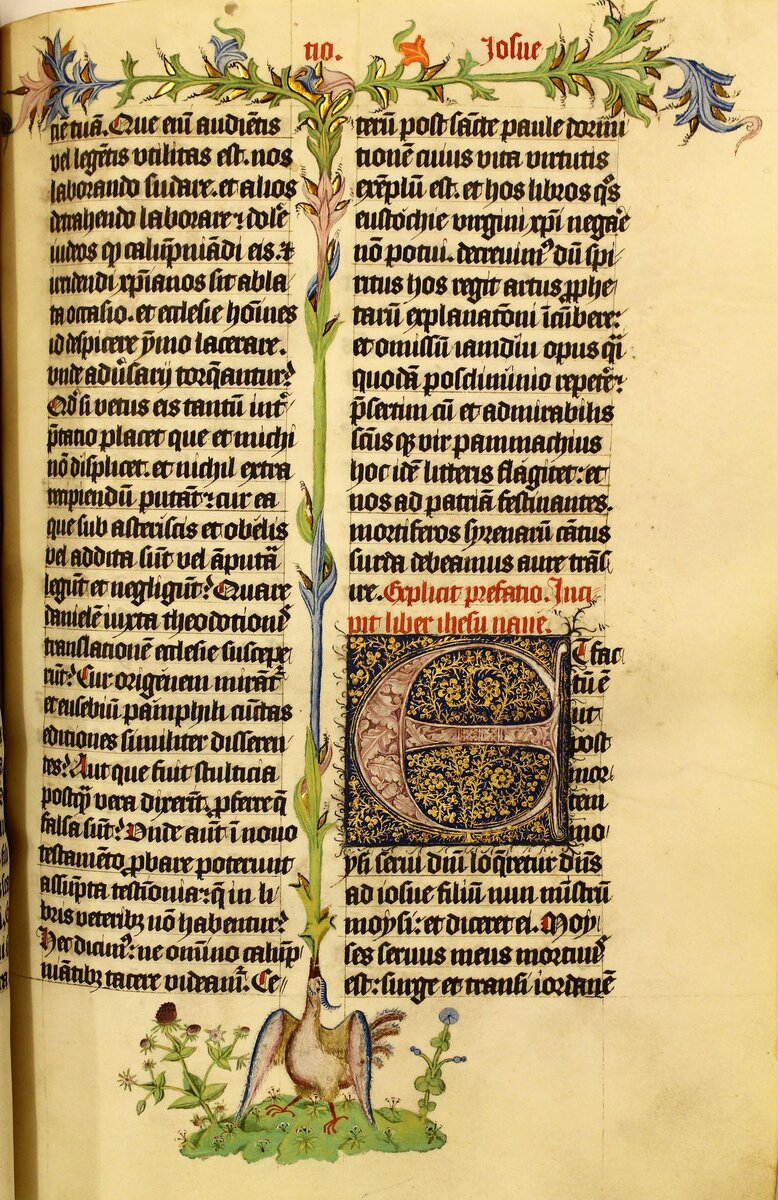 tio. Iosue
nē tuā. Que eni᷒ audiētis
vel legētis vtilitas est. nos
laborando sudare. et alios
detrahendo laborare ⁊ dolē
iudeos qp̄ calūpniādi eis. ⁊
irridendi xp̄ianos sit abla
ta occasio. et ecclesie hoīnes
id despicere ymo lacerare.
vnde adūsarij torq̄antur?
Qd̄ si vetus eis tantū int̄
p̄tatio placet que et michi
nō displicet. et nichil extra
recipiendū putāt ⁊ cur ea
que sub asteriscis et obelis
vel addita sūt vel āputā
legūt et negligūt? Quare
danielē iuxta theodotionē
translationē ecclesie suscepe
rūt? Cur origenem mirāt᷑
et eusebiū pāmphili cūctas
editiones similiter disseren
tes? Aut que fuit stulticia
postq̄ vera dixerīt ꝓferre q̄
falsa sūt? Vnde aūt ī nouo
testamēto ꝓbare poterunt
assūpta testimonia ⁊ q̄ in li
bris veteribꝫ nō habentur?
Hec dicim᷒ ne omnino calūp
niātibꝫ tacere videam᷑. Ce
terū post sācte paule dormi
tionē cuius vita virtutis
exēplū est. et hos libros q̄s
eustochie virgini xp̄i negāe
nō potui. decreuim᷒ dū spi
ritus hos regit artus ꝓphe
tarū explanatōni īcūbere:
et omissū iamdiu opus q̄i
quodā poscliminio repetē
p̄sertim cū et admirabilis
scūs qꝫ vir pammachius
hoc idē litteris flagitet: et
nos ad patriā festinantes.
mortiferos syrenarū cātus
surda debeamus aure trās
ire. Explicit prefatio. Inci
pit liber ihesu naue.
ET fac
tū ē
ut
post
mor
tem
mo
ysi serui dn̄i loq̄retur dn̄s
ad iosue filiū nun mīstrū
moysi: et diceret ei. Moy
ses seruus meus mortuu᷒
est: surge et transi iordanē